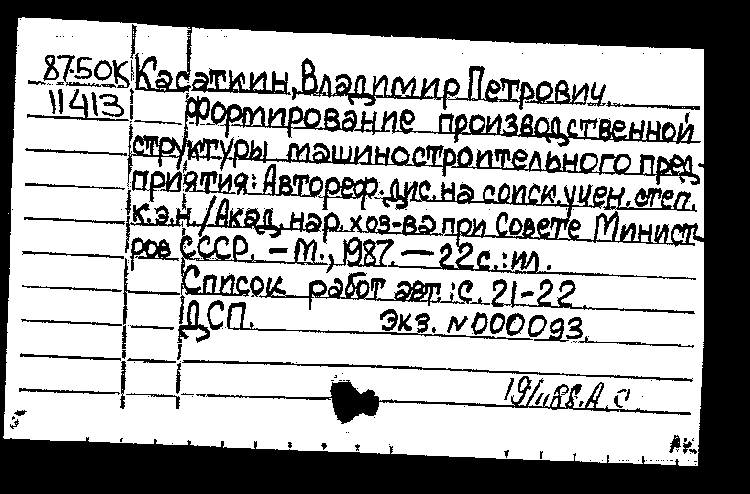 8750К Касаткин, Владимир Петрович.
11413 Формирование производственной
структуры машиностроительного пред-
приятия: Автореф. дис. на соиск. учен. степ.
к.э.н. / Акад. нар. хоз-ва при Совете Минист-
ров СССР. – М., 1987. — 22 с. : ил.
Список работ авт.: с. 21-22.
ДСП. Экз. N000093.
19/II88. А.С.
5